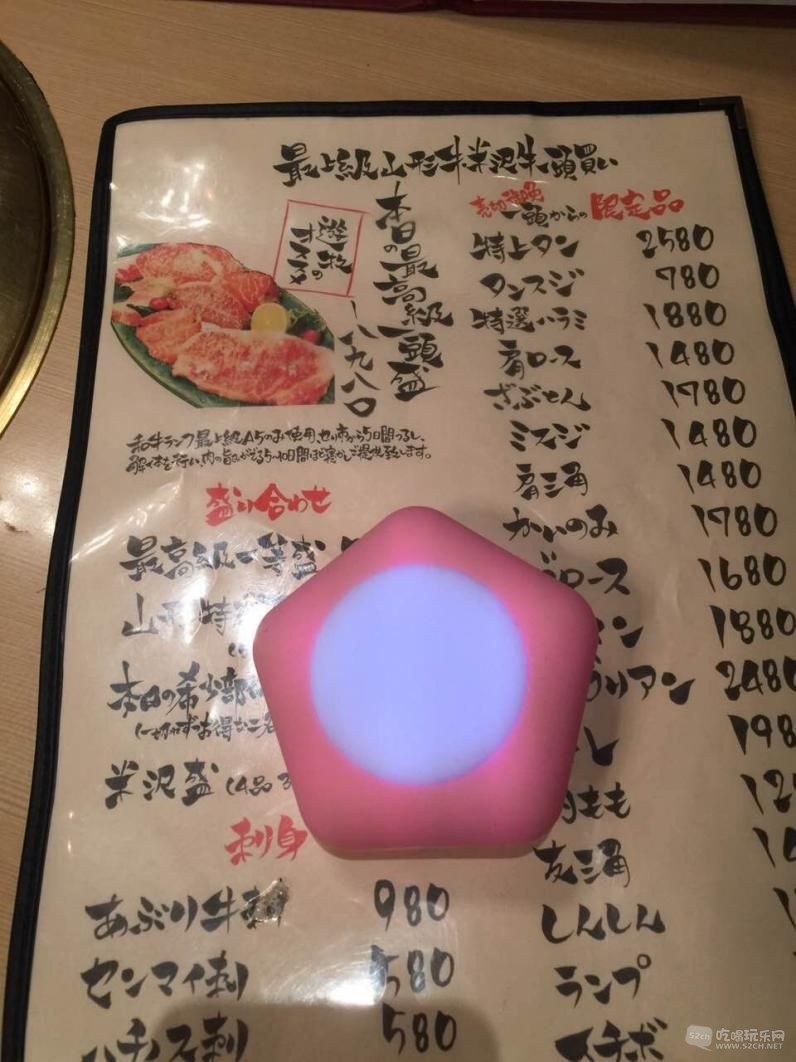 最上級山形牛米沢牛一頭買い
遊牧の
オススメ
本日の最高級一頭盛
一八九八〇
和牛ランク最上級A5のみ使用。せり市から5日間つるし、
解体を行い、肉の旨みがでる5〜10日間ほど寝かしご提供致します。
盛り合わせ
最高級一等盛
山形特
本日の希少部
米沢盛 (4品
刺身
あぶり牛刺 980
センマイ刺 580
ハチノス刺 580
売切御免
一頭からの 限定品
特上タン 2580
タンスジ 780
特選ハラミ 1880
肩ロース 1480
ざぶとん 1780
ミスジ 1480
肩三角 1480
かいのみ 1780
ロース 1680
ン 1880
ブリアン 2480
レ 198
もも 12
友三角
しんしん
ランプ
イチボ
52ch 吃喝玩乐网
WWW.52CH.NET